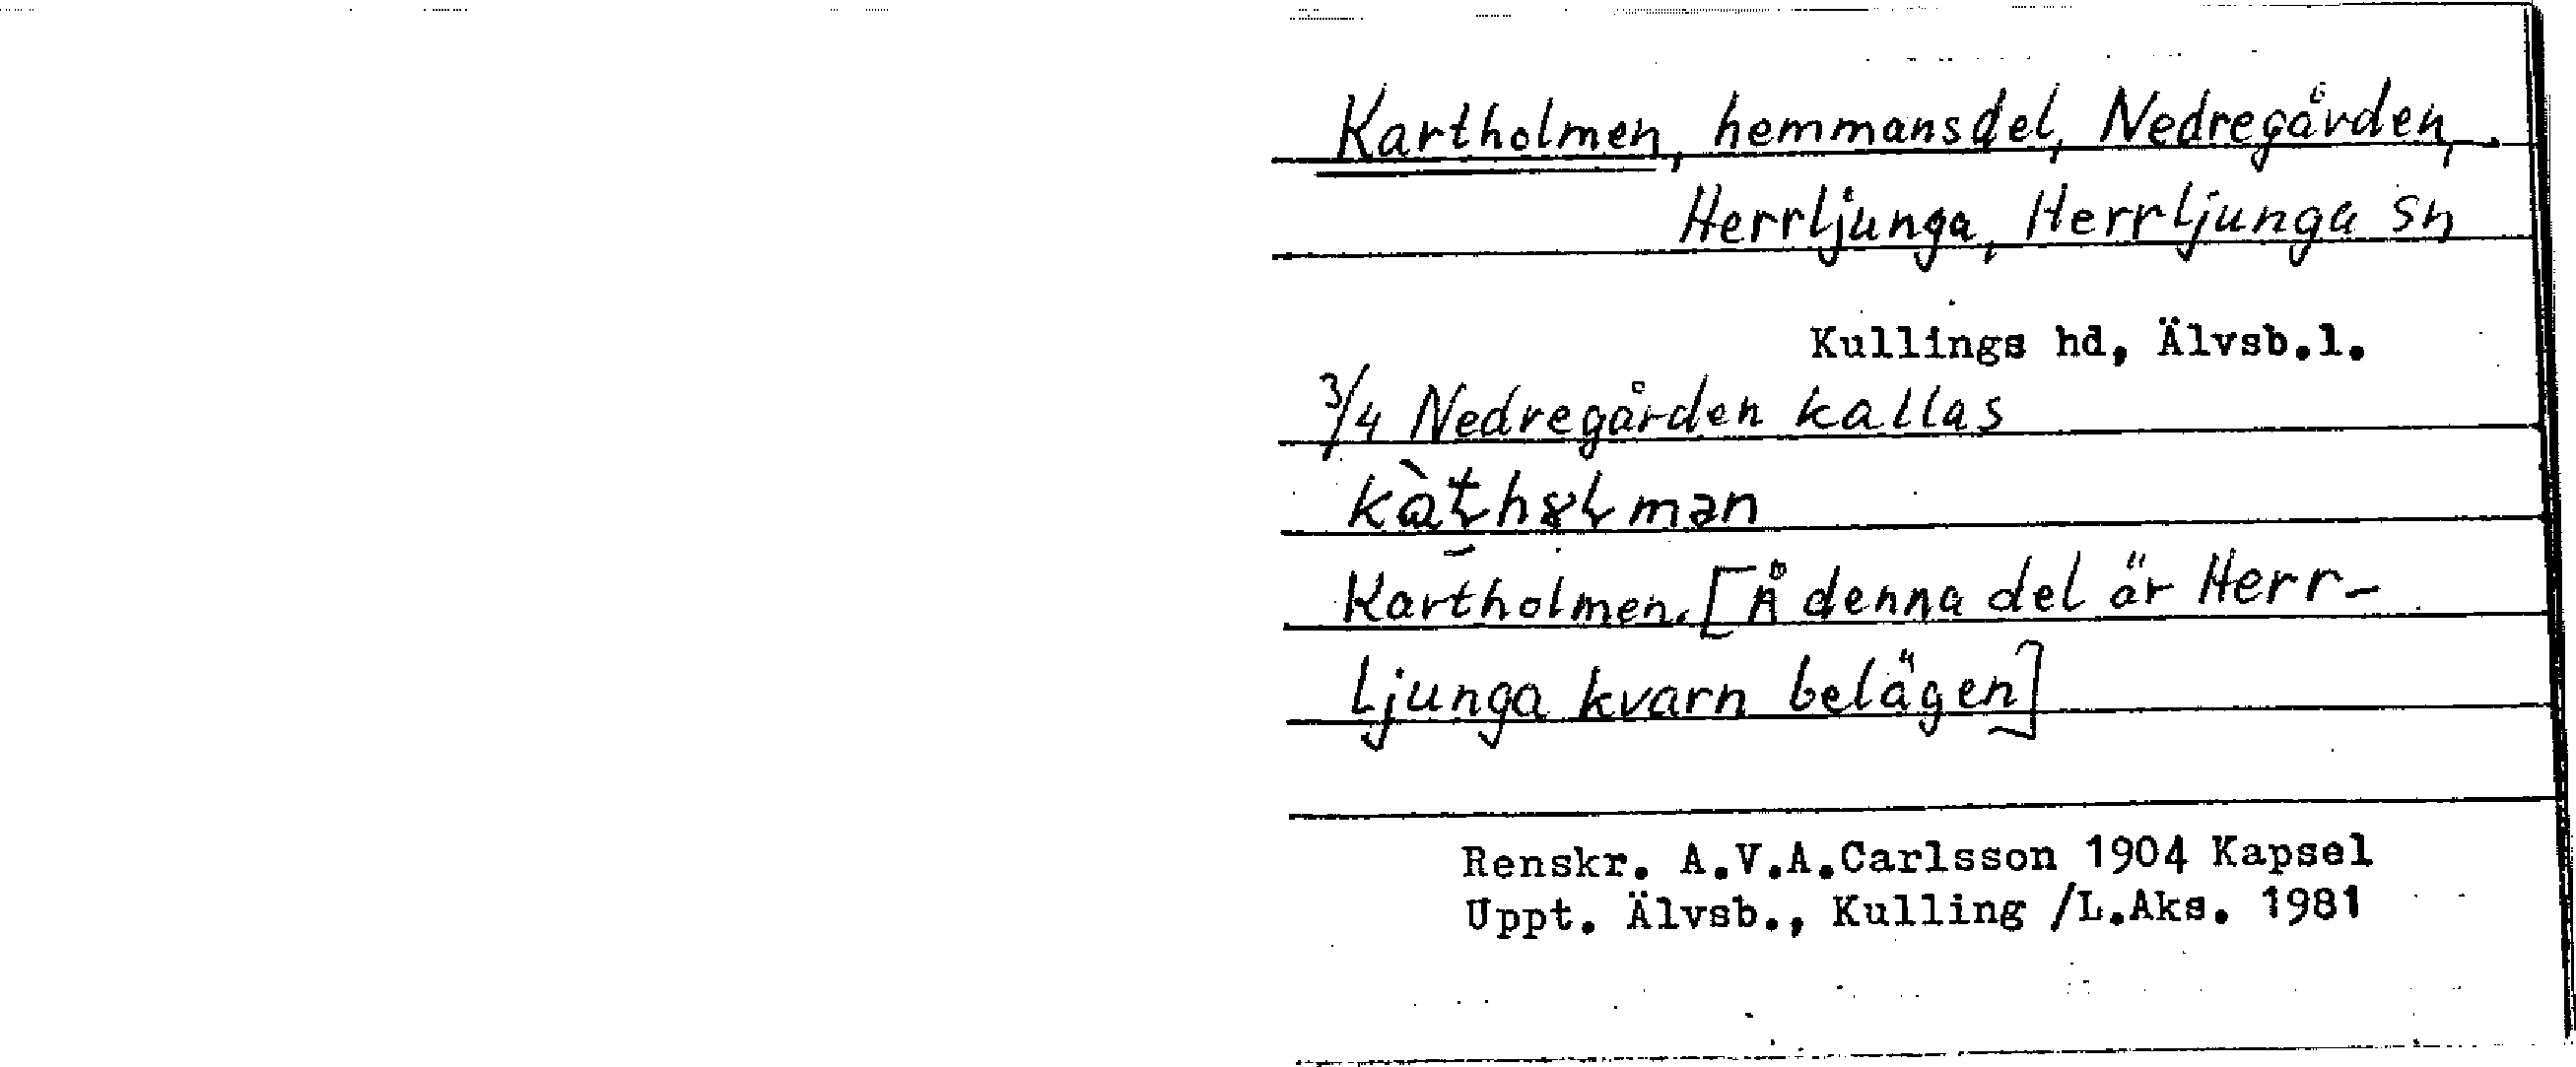 Kartholmen, hemmansdel, Nedregården,
Herrljunga, Herrljunga sn
Kullings hd, Älvsb.l.
3/4 Nedregården kallas
Kartholmen. [Å denna del är Herr-
ljunga kvarn belägen]
Renskr. A.V.A.Carlsson 1904 Kapsel
Uppt. Älvsb., Kulling /L.Aks. 1981